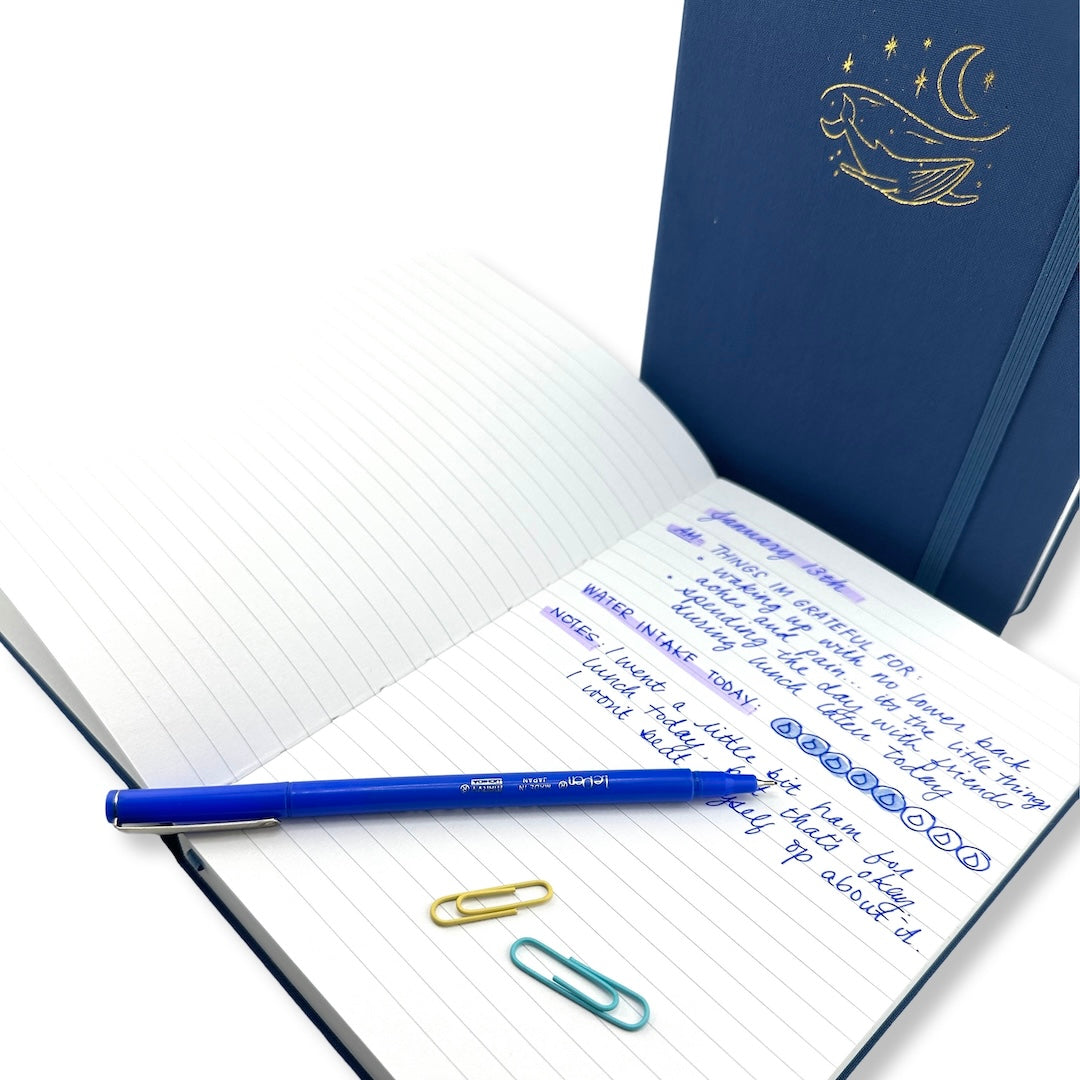 January 13th
AM THINGS IM GRATEFUL FOR:
• waking up with no lower back
aches and pain... its the little things
• spending the day with friends
during lunch later today
WATER INTAKE TODAY:
NOTES: I went a little bit ham for
lunch today, but thats okay-
I wont beat myself up about it.
Le Pen
MADE IN
JAPAN